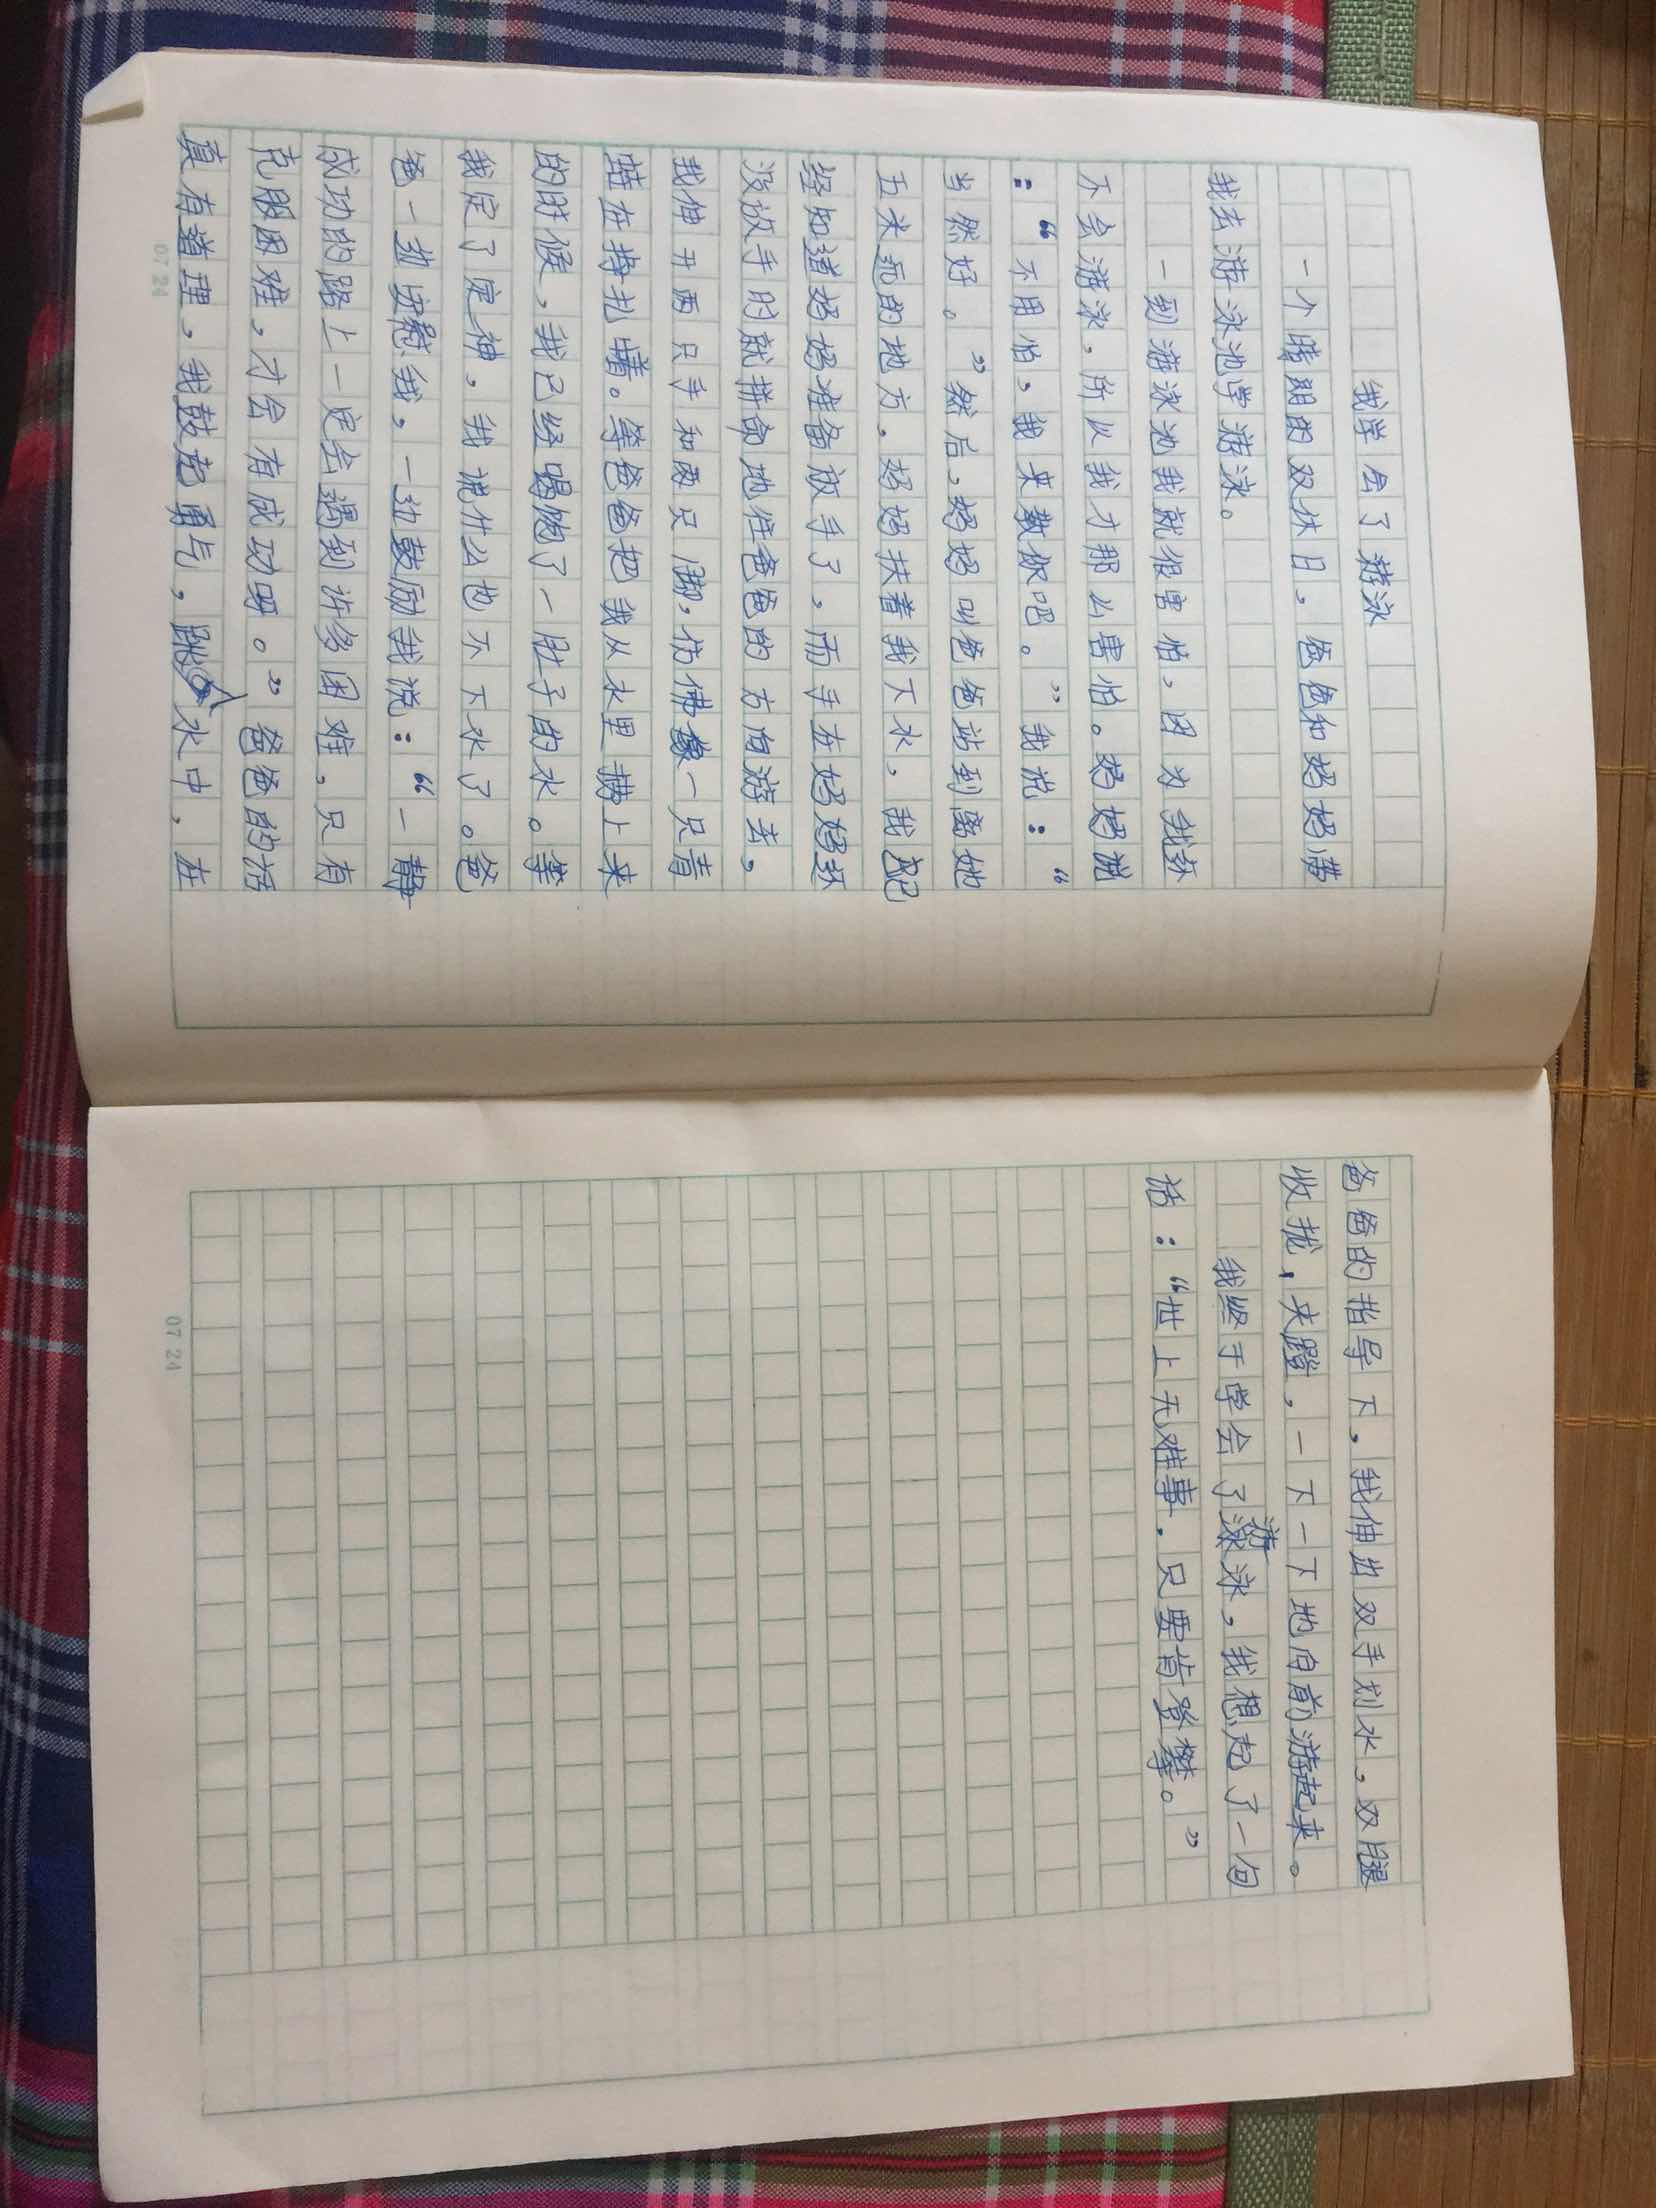 我学会了游泳
一个晴朗的双休日，爸爸和妈妈带
我去游泳池学游泳。
一到游泳池我就很害怕，因为我还
不会游泳，所以我才那么害怕。妈妈说
：“不用怕，我来教你吧。”我说：“
当然好。”然后，妈妈叫爸爸站到离她
五米远的地方。妈妈扶着我下水，我已
经知道妈妈准备放手了，而手在妈妈还
没放手时就拼命地往爸爸的方向游去，
我伸开两只手和两只脚，仿佛像一只青
蛙在挣扎着。等爸爸把我从水里捞上来
的时候，我已经喝饱了一肚子的水。等
我定了定神，我说什么也不下水了。爸
爸一边安慰我，一边鼓励我说：“一
成功的路上一定会遇到许多困难，只有
克服困难，才会有成功呀。”爸爸的话
真有道理，我鼓起勇气，跳水中，在
爸爸的指导下，我伸出双手划水，双腿
收拢，夹蹬，一下一下地向前游起来。
我终于学会了游泳，我想起了一句
话：“世上无难事，只要肯登攀。”
07 24
07 24